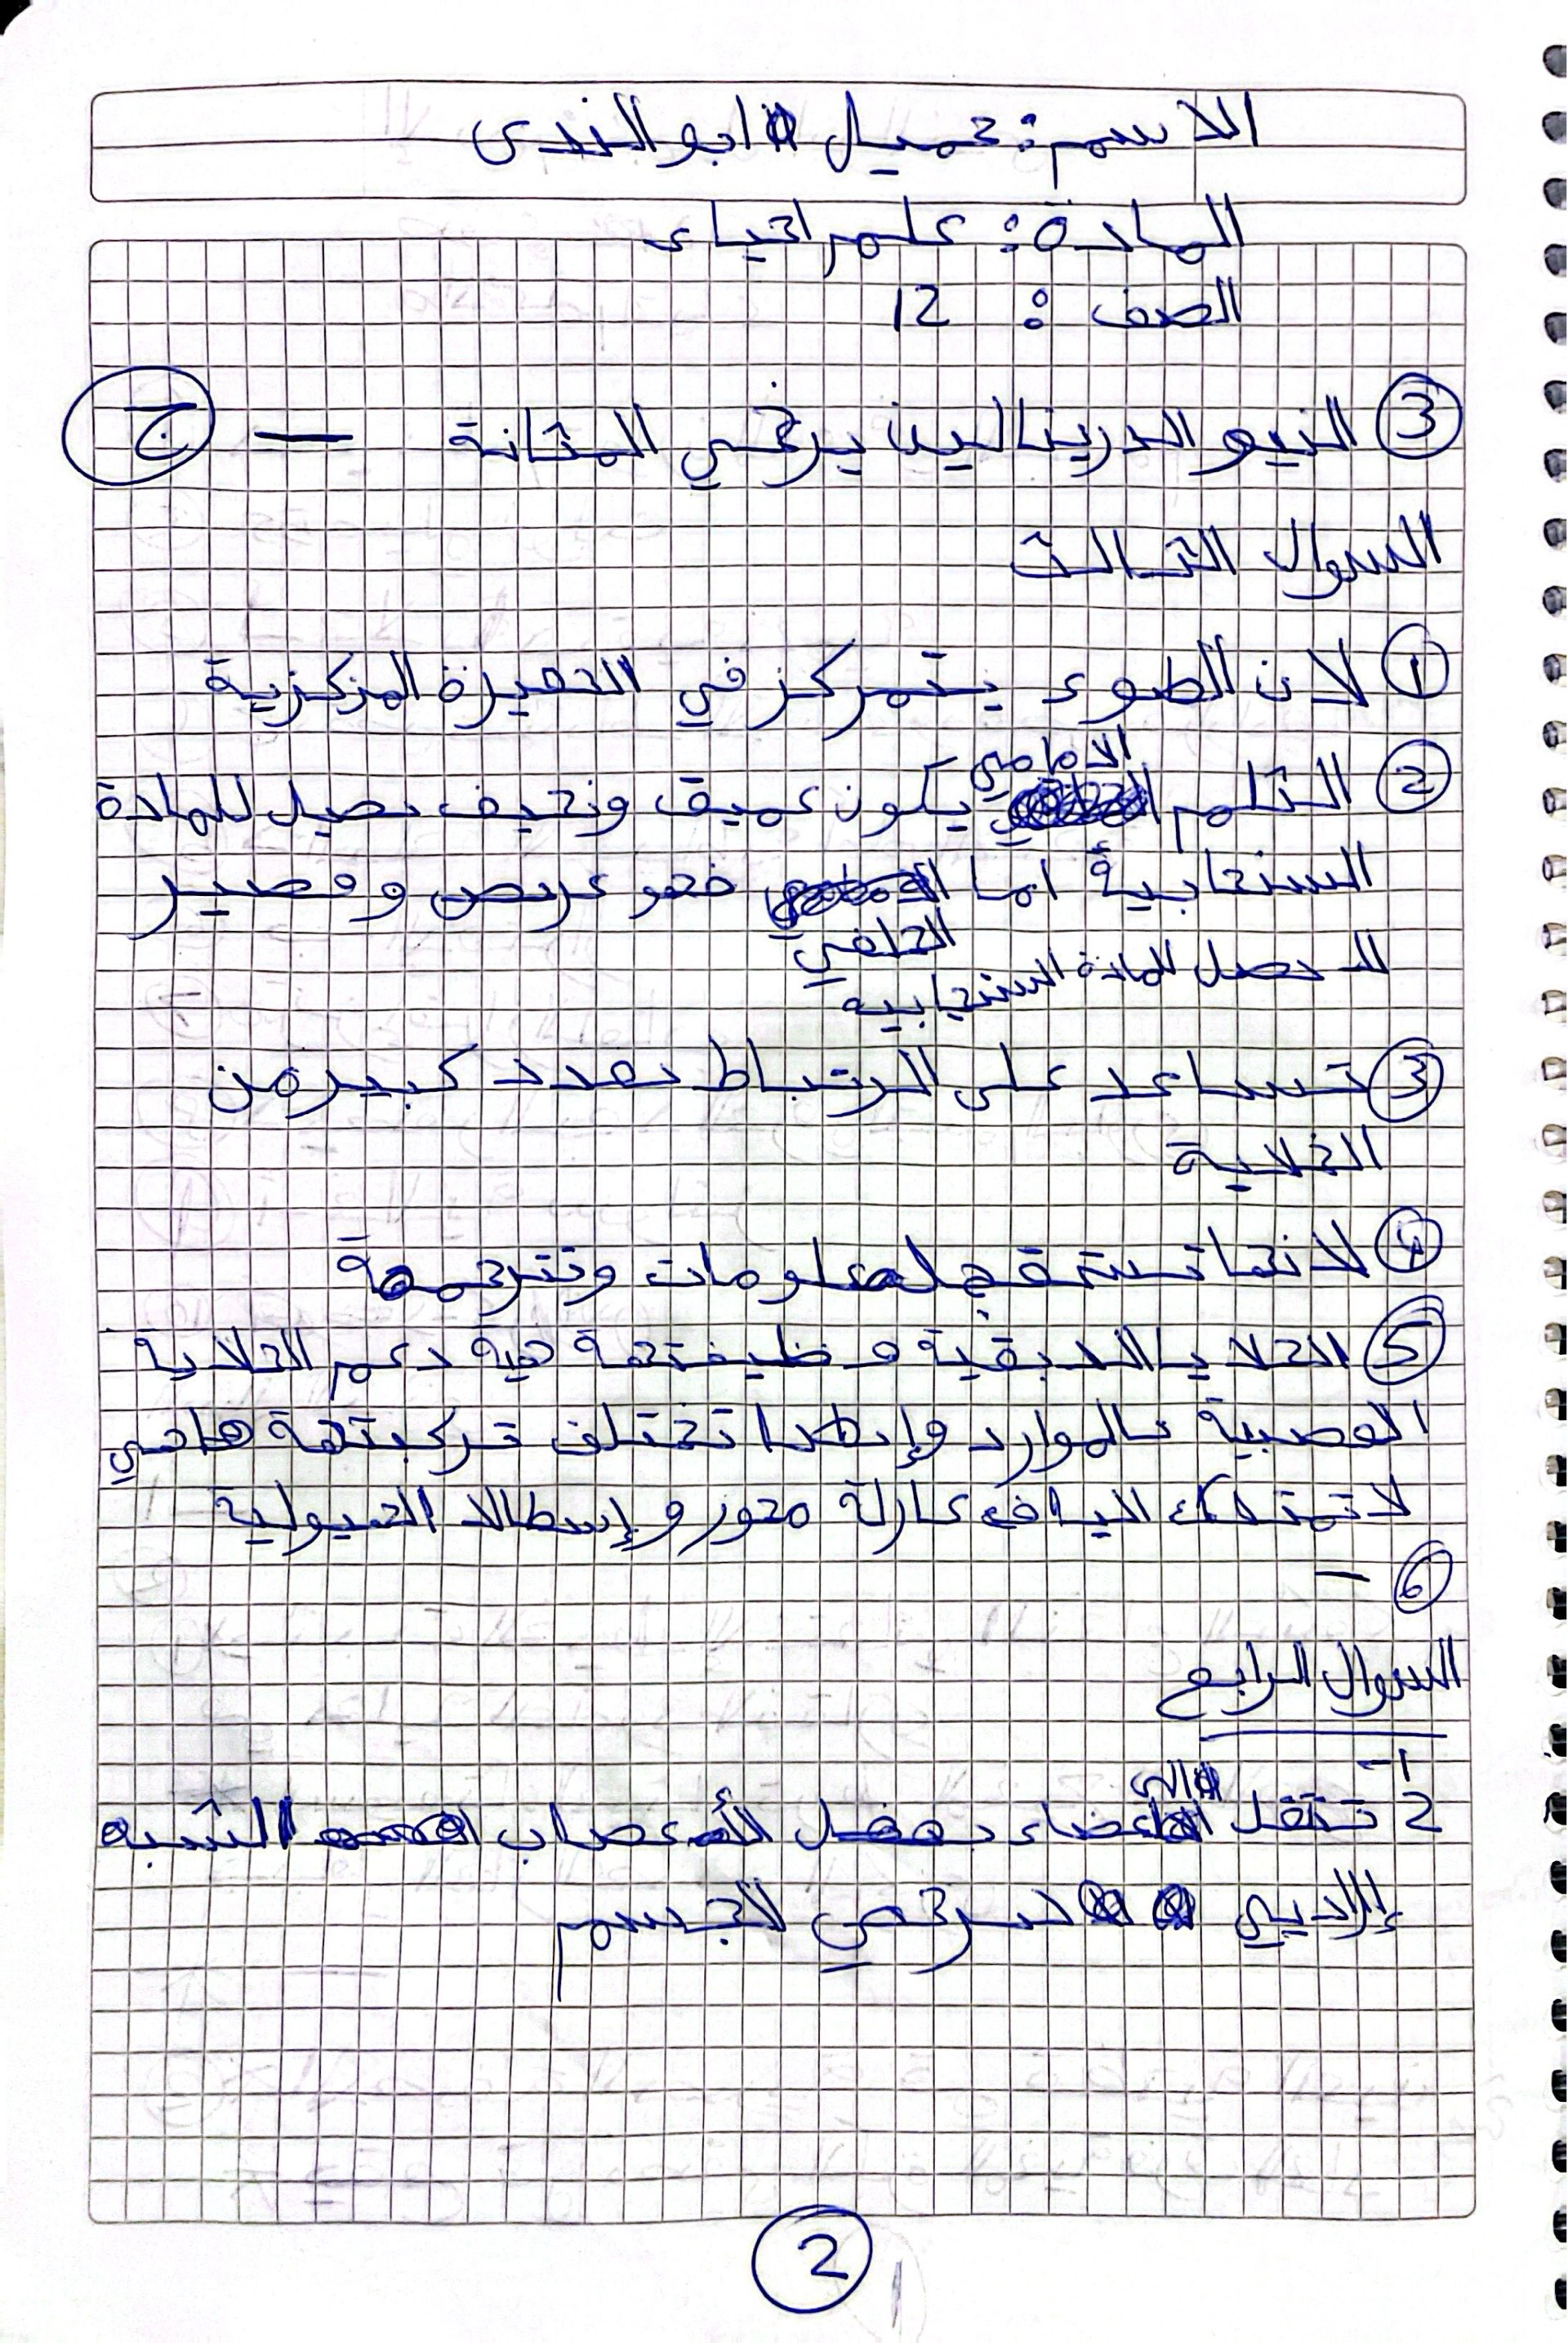 الاسم: جميل ابو الندى
المادة: علم احياء
الصف : 12
③ النيو الدرينالين يرخي المثانة — ج
السوال الثالث
① لان الضوء يتمركز في الحفيرة المركزية
② الثلم الامامي يكون عميق ونحيف يصل للمادة
السنجابية اما الخلفي فهو عريض وقصير
لا يصل للمادة السنجابيه
③ تساعد على الرتباط بعدد كبير من
الخلاية
④ لانها تستقبل معلومات وتترجمة
⑤ الخلايا الدبقية وظيفتهة هية دعم الخلاية
العصبية بالموارد وإيظا تختلف تركبتهة هاهي
لا تمتلك الياف عازلة محور و إسطالا الهيولية
⑥ —
السوال الرابع
1-
2 تنتقل الى اعضاء بفضل الأعصاب الشبه
إلاديي سرخي لاجسم
2